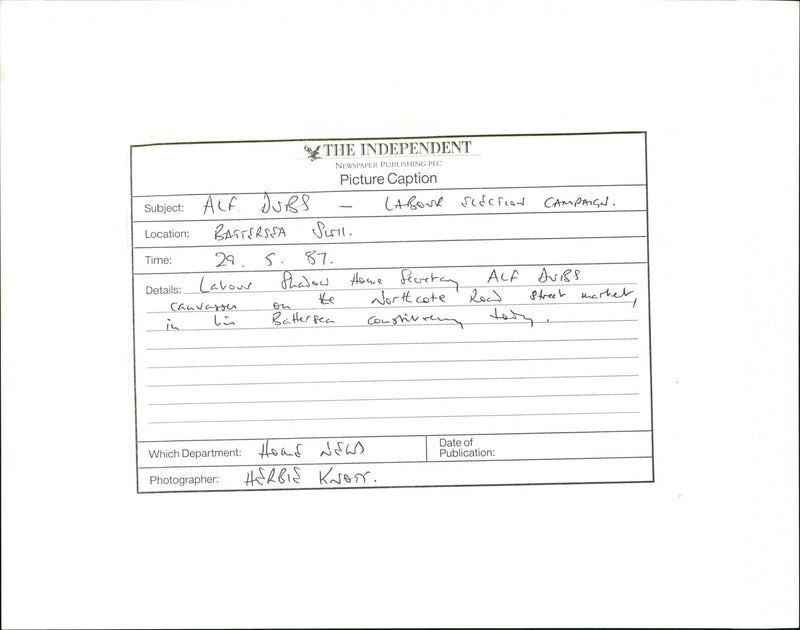 THE INDEPENDENT
NEWSPAPER PUBLISHING PLC
Picture Caption
Subject: ALF DUBS — LABOUR ELECTION CAMPAIGN.
Location: BATTERSEA SW11.
Time: 29. 5. 87.
Details: Labour Shadow Home Secretary ALF DUBS
canvasses on the Northcote Road street market,
in his Battersea constituency today.
Which Department: HOME NEWS
Date of
Publication:
Photographer: HERBIE KNOTT.